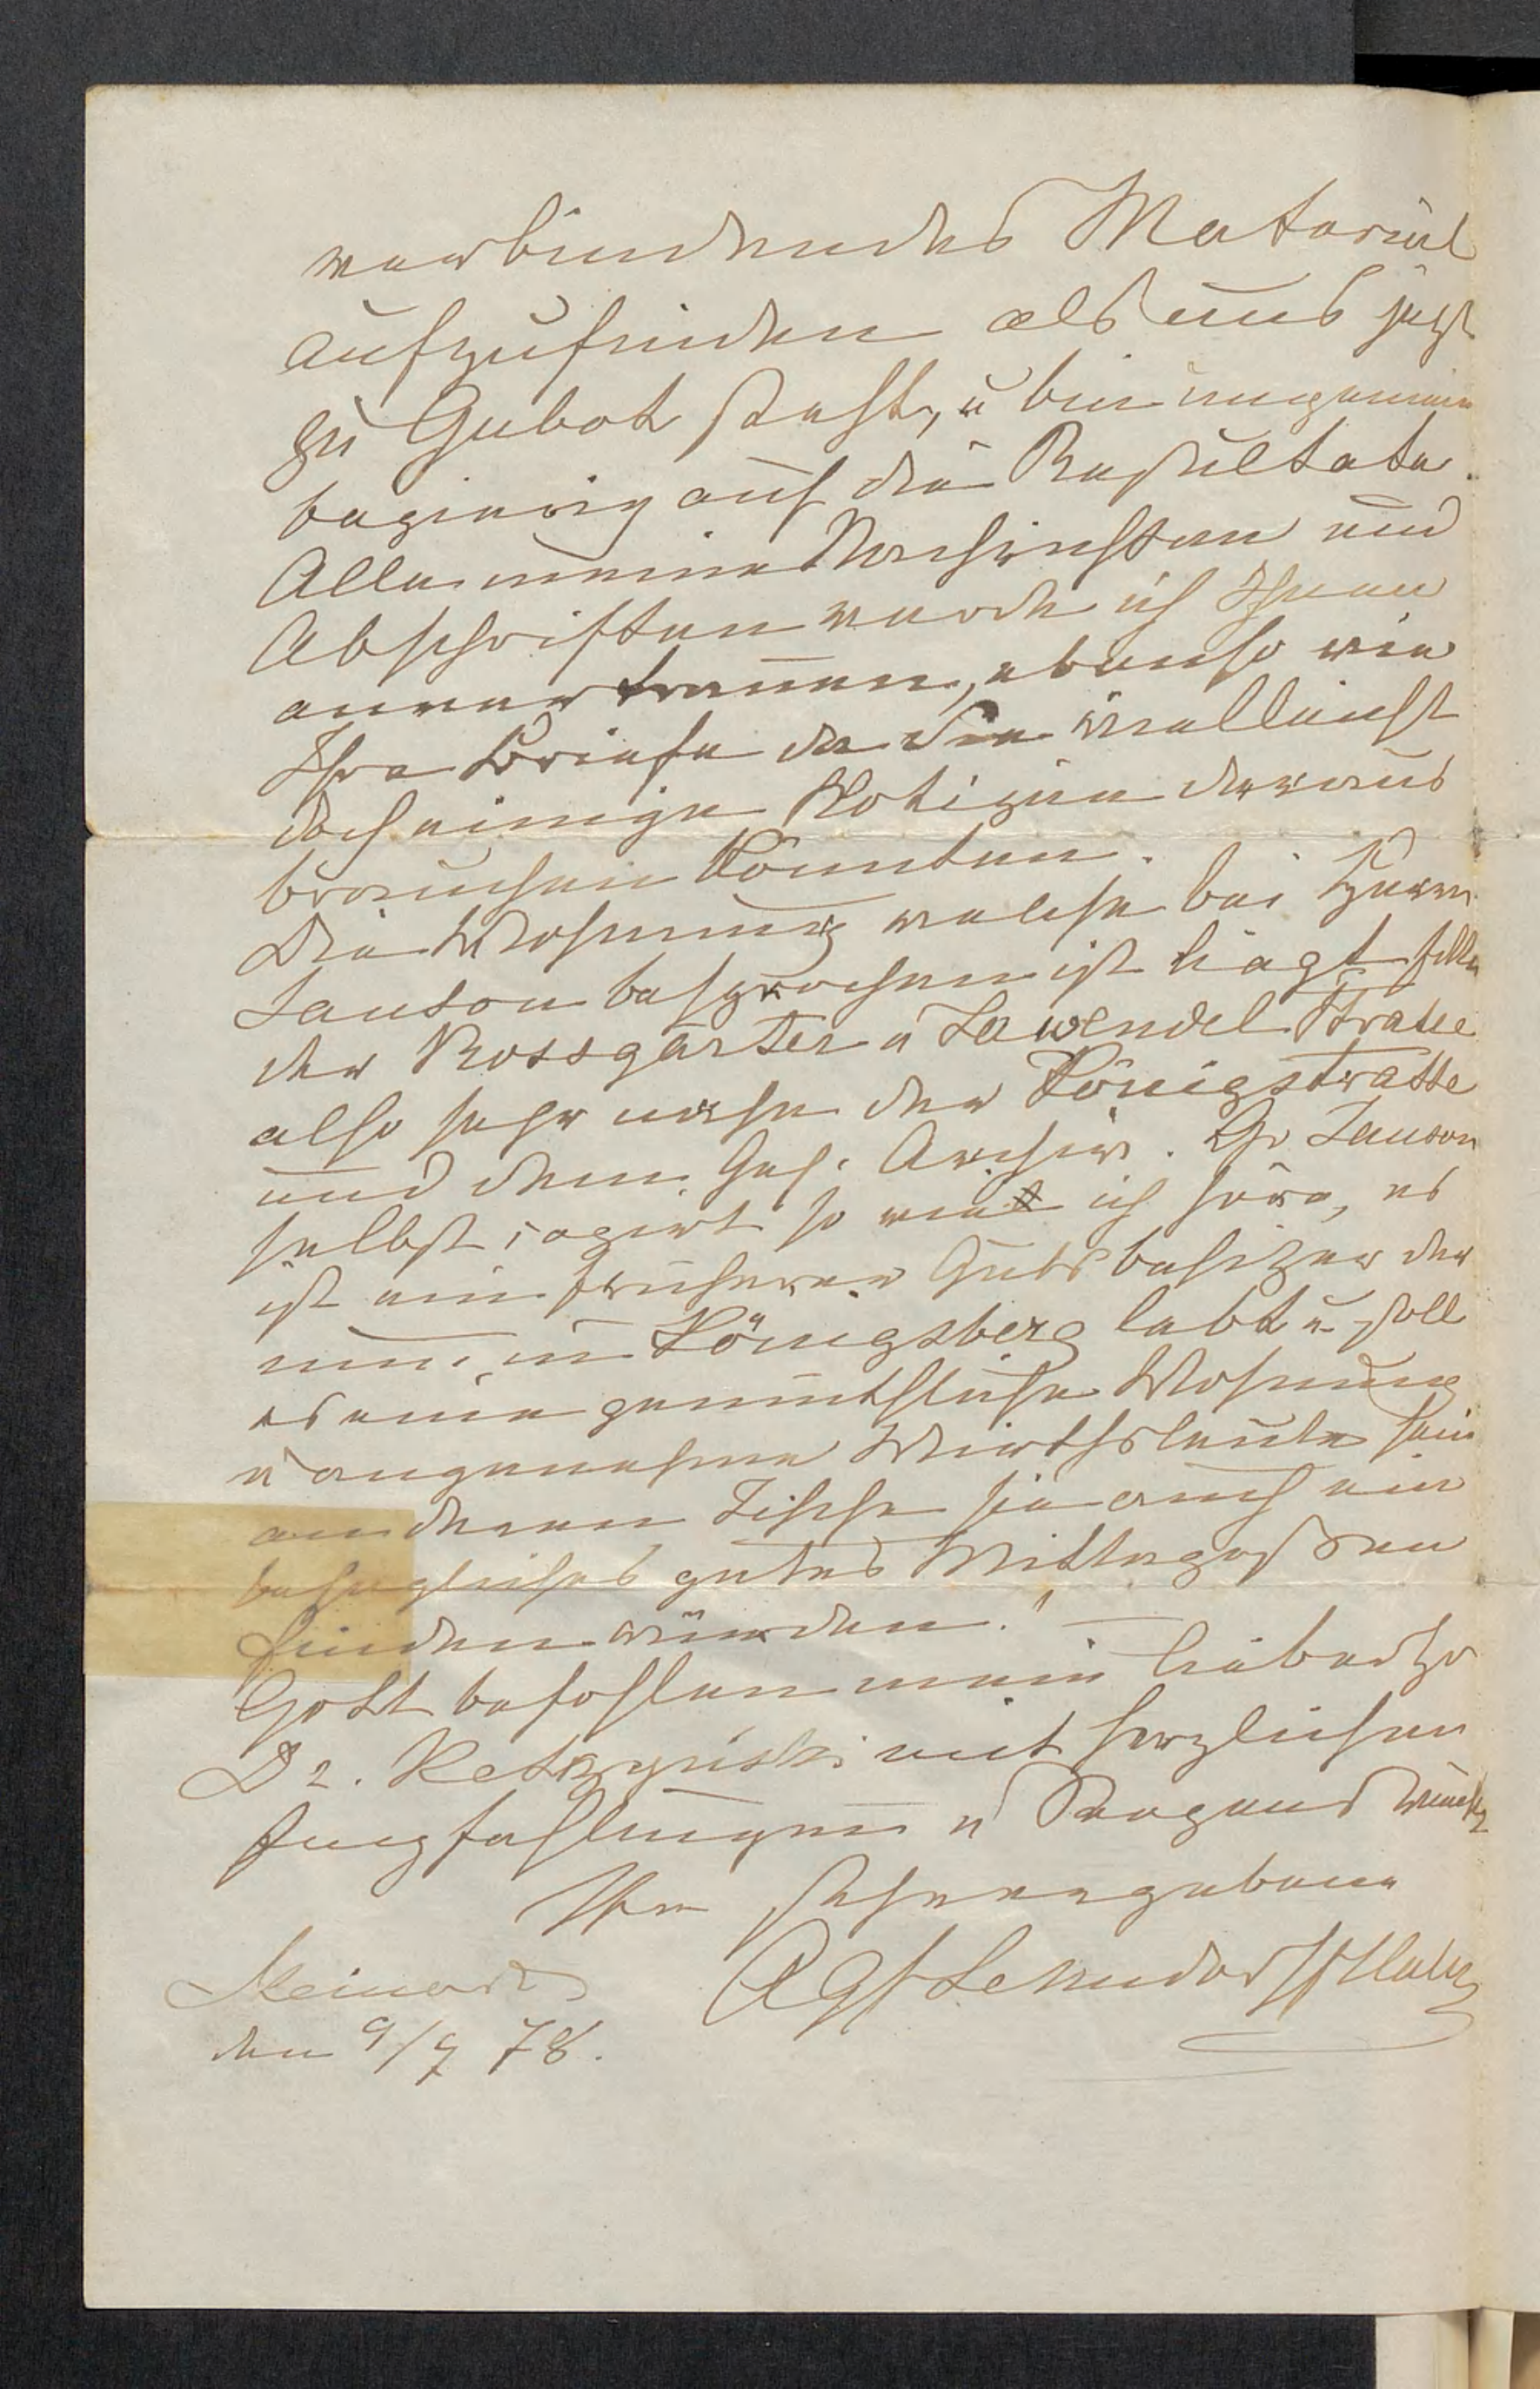 verbindendes Material
aufzufinden als uns jetzt
zu Gebot steht, u bin ungemein
begierig auf die Resultate.
Alle meine Nachrichten und
Abschriften werde ich Ihnen
anvertrauen, ebenso wie
Ihre Briefe da Sie vielleicht
doch einige Notizen daraus
brauchen könnten.
Die Wohnung welche bei Herrn
Janson besprochen ist liegt
der Rossgärter u Lawendel Strasse
also sehr nahe der Königstrasse
und dem Geh. Archiv. Hr Janson
selbst, sagirt so wie ich höre, es
ist ein früherer Gutsbesitzer der
nun in Königsberg lebt u soll
es eine gemüthliche Wohnung
u angenehme Wirthsleute sein
an deren Tische sie auch ein
behagliches gutes Mittagessen
finden würden." —
Gott befohlen mein lieber Hr
Dr. Ketrzynski mit herzlichen
Empfehlungen u
Ihre sehr ergebene
A Gf Lehndorff
Steinort
den 9/9 78.